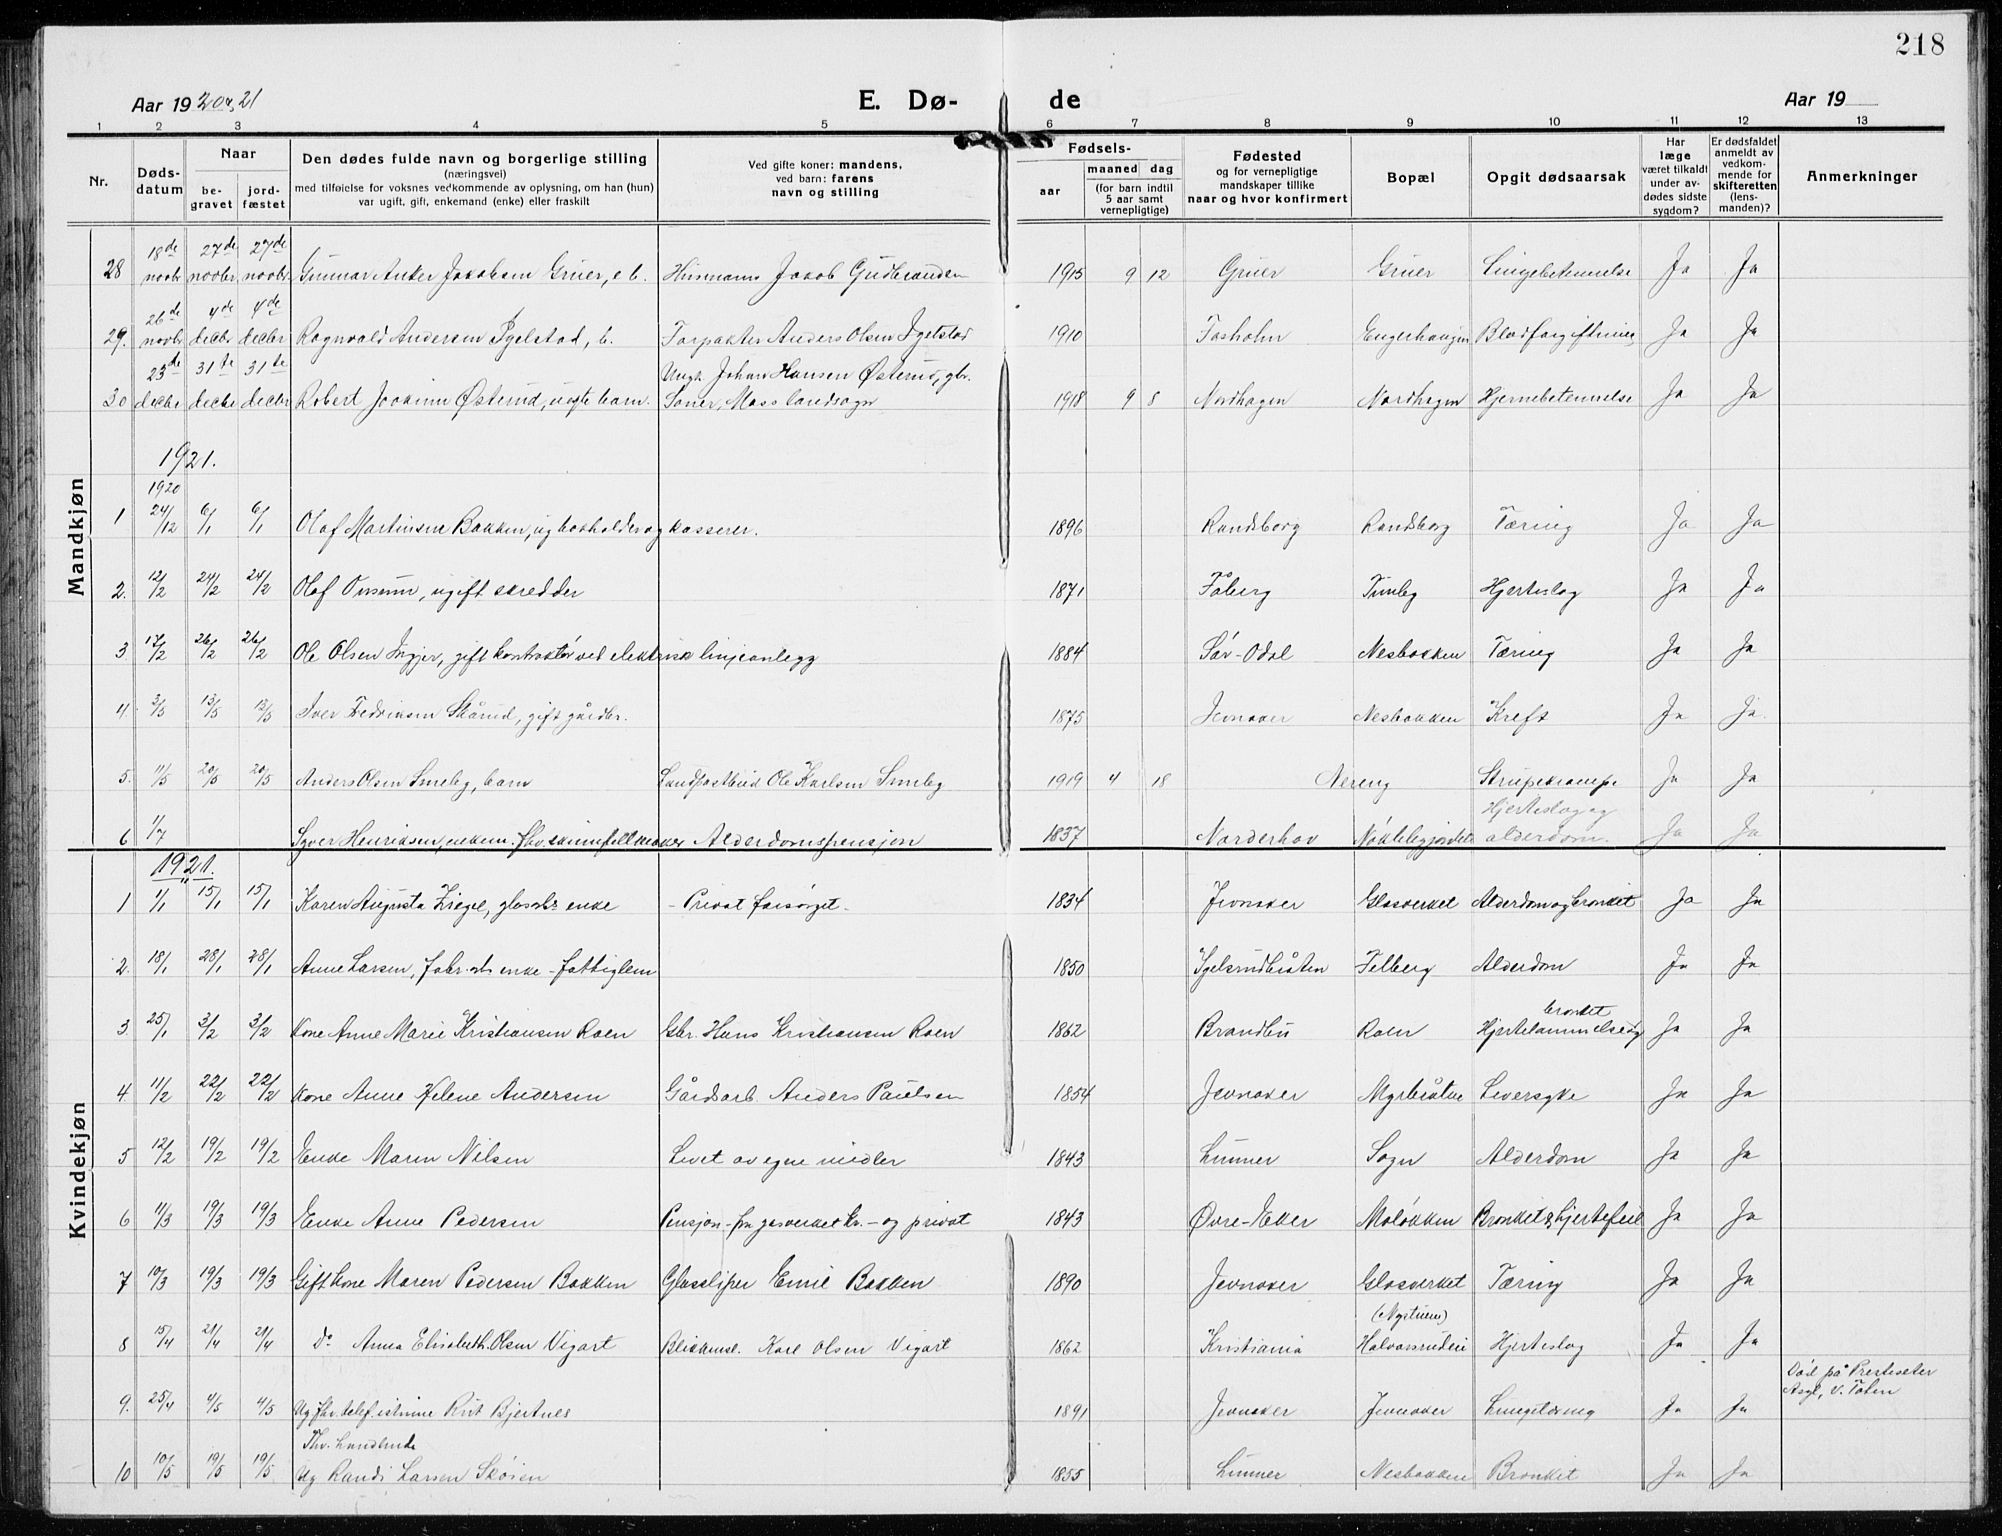 218
Aar 1920 & 21
E. Dø- de
Aar 19
1 2 3 4 5 6 7 8 9 10 11 12 13
Nr.
Døds-
datum
Naar
be-
gravet
jord-
fæstet
Den dødes fulde navn og borgerlige stilling
(næringsvei)
med tilføielse for voksnes vedkommende av oplysning, om han (hun)
var ugift, gift, enkemand (enke) eller fraskilt
Ved gifte koner: mandens,
ved barn: farens
navn og stilling
Fødsels-
aar
maaned dag
(for barn indtil
5 aar samt
vernepligtige)
Fødested
og for vernepligtige
mandskaper tillike
naar og hvor konfirmert
Bopæl
Opgit dødsaarsak
Har
læge
været tilkaldt
under av-
dødes sidste
sygdom?
Er dødsfaldet
anmeldt av
vedkom-
mende for
skifteretten
(lens-
manden)?
Anmerkninger
Mandkjøn
18de 27de 27de
28 novbr novbr novbr Gunnar Anker Jakobsen Gruer, e b. Husmann Jakob Gudbrandsen 1915 9 12 Gruer Gruer Lungebetennelse Ja Ja
26de 4de 4de
29. novbr decbr decbr Ragnvald Andersen Igelstad, b. Forpakter Anders Olsen Igelstad 1910 Fosholm Engerhaugen Blodforgiftning Ja Ja
23de 31te 31te Ungk. Johan Hansen Østerud, gbr.
30 decbr decbr decbr Robert Joakim Østerud, uegte barn. Soner, Moss landsogn 1918 9 8 Nordhagen Nordhagen Hjernebetennelse Ja Ja
1921.
1920
1 24/12 6/1 6/1 Olaf Martinsen Bakken, ug bokholder og kasserer. 1896 Randsborg Randsborg Tæring Ja Ja
2. 12/2 24/2 24/2 Olaf, ugift skredder 1871 Fåberg Hjerteslag Ja Ja
3 17/2 26/2 26/2 Ole Olsen Ingjer, gift kontraktør ved elektrisk linjeanlegg 1884 Sør-Odal Nesbakken Tæring Ja Ja
4. 3/5 13/5 13/5 Iver Fedriksen Skårud, gift gårdbr. 1875 Jevnaker Nesbakken Kreft Ja Ja
5. 11/5 20/5 20/5 Anders Olsen Smeby, barn Landpostbud Ole Karlsen Smeby 1919 4 18 Nereng Strupekrampe Ja Ja
Hjerteslag og
6 1/7 Syver Henriksen, enkem. fhv. skinnfellmaker Alderdomspensjon 1837 Norderhov alderdom. Ja Ja
Kvindekjøn
1921.
1 1/1 15/1 15/1 Karen Augusta Ziegel, glassbl. enke - Privat forsørget - 1834 Jevnaker Glasverket Alderdom og bronkit Ja Ja
2. 18/1 28/1 28/1 Anne Larsen, fabr. arb. enke - fattiglem 1850 Igelsrudbråten Felberg Alderdom Ja Ja
bronkit
3. 25/1 3/2 3/2 Kone Anne Marie Kristiansen Roen Gbr. Hans Kristiansen Roen 1862 Brandbu Roen Hjertelammelse og Ja Ja
4. 11/2 22/2 22/2 Kone Anne Helene Andersen Gårdsarb. Anders Paulsen 1854 Jevnaker Myrbråten Leversyke Ja Ja
5 12/2 19/2 19/2 Enke Maren Nilsen Levet av egne midler 1843 Lunner Sogn Alderdom Ja Ja
6 11/3 19/3 19/3 Enke Anne Pedersen Pensjon - fra gasverket Kr. - og privat 1843 Øvre-Eker Moløkken Bronkit & hjertefeil Ja Ja
7 10/3 19/3 19/3 Gift kone Maren Pedersen Bakken Glassliper Emil Bakken 1890 Jevnaker Glasverket Tæring Ja Ja
(Nystuen)
8 15/4 21/4 21/4 Do Anna Elisabeth Olsen Vigart Blikkensl. Karl Olsen Vigart 1862 Kristiania Halvorsrudeie Hjerteslag Ja Ja
Død på Presteseter
Asyl, V. Toten
9. 25/4 4/5 4/5 Ug fhv. telef.istinne Rut Bjertnes 1891 Jevnaker Jevnaker Lungetæring Ja Ja
Fhv. handlende
10 10/5 19/5 19/5 Ug Randi Larsen Skøien 1855 Lunner Nesbakken Bronkit Ja Ja